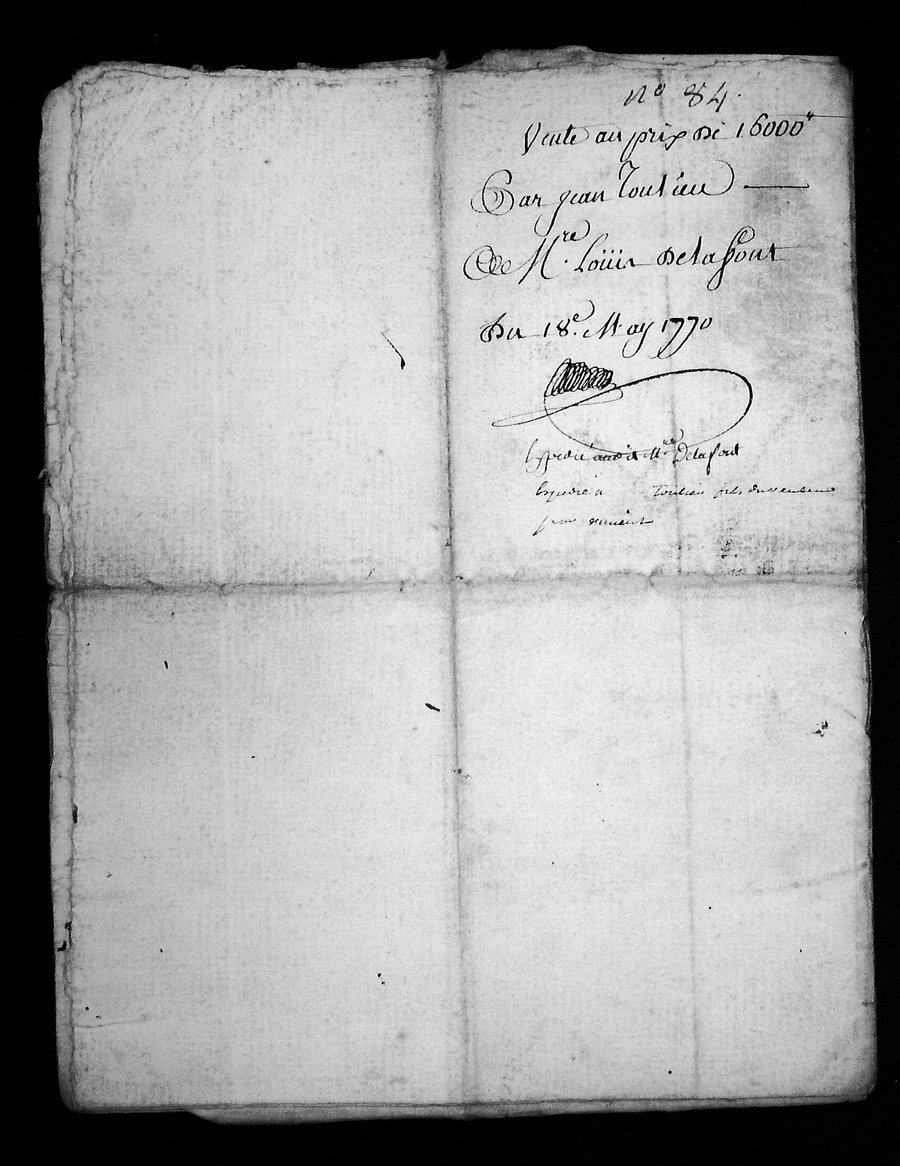 n° 84.
Vente au prix de 16000#
Par jean Toutieu
A Mre. Loüis Delafont
Du 18e. May 1770
Expedié audit Mre Delafont
Expedié a Toutieu fils